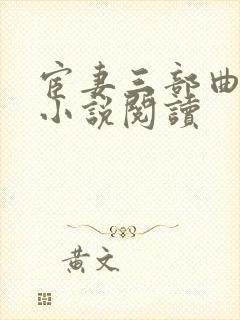 宦妻三部曲
小説閱讀
黃文